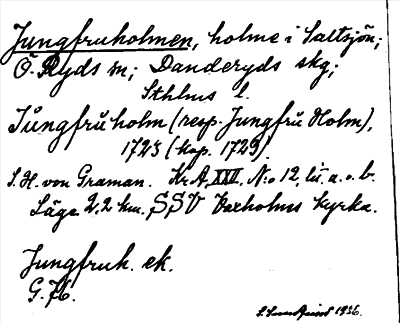 Jungfruholmen, holme i Saltsjön;
Ö. Ryds sn; Danderyds skg;
Sthlms l.
Jŭngfrŭholm (resp. Jungfrŭ Holm),
1723 (kop. 1729).
S. H. von Graman. Kr. A, XXII, N:o 12, lit. a. o. b.
Läge 2,2 km. SSV Vaxholms kyrka.
Jungfruh. ek.
G. 76.
1926.